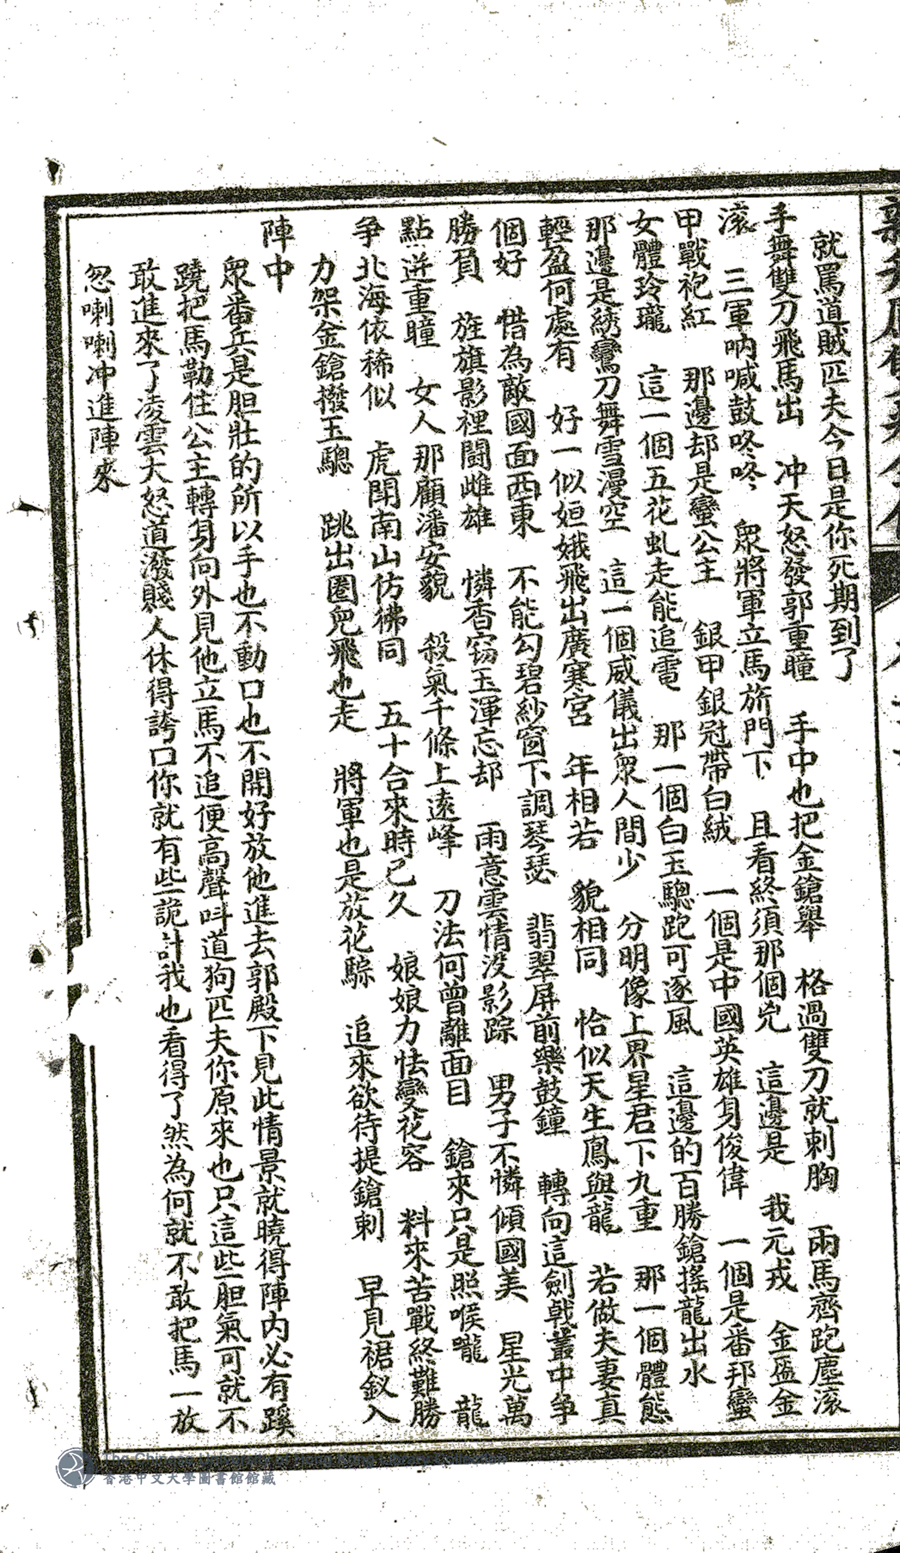 就罵道賊匹夫今日是你死期到了
手舞雙刀飛馬出　冲天怒發郭重瞳　手中也把金鎗舉　格過雙刀就刺胸　兩馬齊跑塵滚
滚　三軍吶喊鼓咚咚　眾將軍立馬旂門下　且看終須那個兇　這邊是　我元戎　金盔金
甲戰袍紅　那邊却是蠻公主　銀甲銀冠帶白絨　一個是中國英雄身俊偉　一個是番邦蠻
女體玲瓏　這一個五花虬走能追電　那一個白玉驄跑可逐風　這邊的百勝鎗搖龍出水
那邊是綉鸞刀舞雪漫空　這一個威儀出眾人間少　分明像上界星君下九重　那一個體態
輕盈何處有　好一似姮娥飛出廣寒宮　年相若　貌相同　恰似天生鳳與龍　若做夫妻真
個好　惜為敵國面西東　不能勾碧紗窗下調琴瑟　翡翠屏前樂鼓鐘　轉向這劍戟叢中爭
勝負　旌旗影裡鬪雌雄　憐香窃玉渾忘却　雨意雲情没影踪　男子不憐傾國美　星光萬
點迸重瞳　女人那顧潘安貌　殺氣千條上遠峰　刀法何曾離面目　鎗來只是照喉嚨　龍
爭北海依稀似　虎鬪南山仿彿同　五十合來時已久　娘娘力怯變花容　料來苦戰終難勝
力架金鎗撥玉驄　跳出圈兒飛也走　將軍也是放花騌　追來欲待提鎗刺　早見裙釵入
陣中
眾番兵是胆壯的所以手也不動口也不開好放他進去郭殿下見此情景就曉得陣内必有蹊
蹺把馬勒住公主轉身向外見他立馬不追便高聲呌道狗匹夫你原來也只這些胆氣可就不
敢進來了凌雲大怒道潑賤人休得誇口你就有些詭計我也看得了然為何就不敢把馬一放
忽喇喇冲進陣來
香港中文大學圖書館館藏